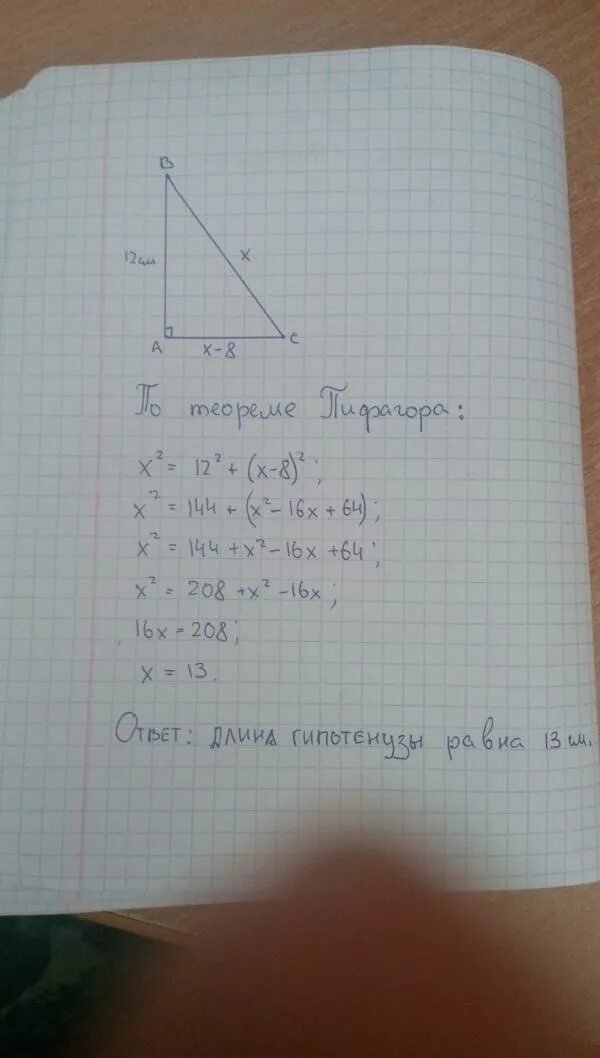 В
12см
x
А
x-8
С
По теореме Пифагора:
x² = 12² + (x-8)²;
x² = 144 + (x² - 16x + 64);
x² = 144 + x² - 16x + 64;
x² = 208 + x² - 16x;
16x = 208;
x = 13.
Ответ: длина гипотенузы равна 13 см.